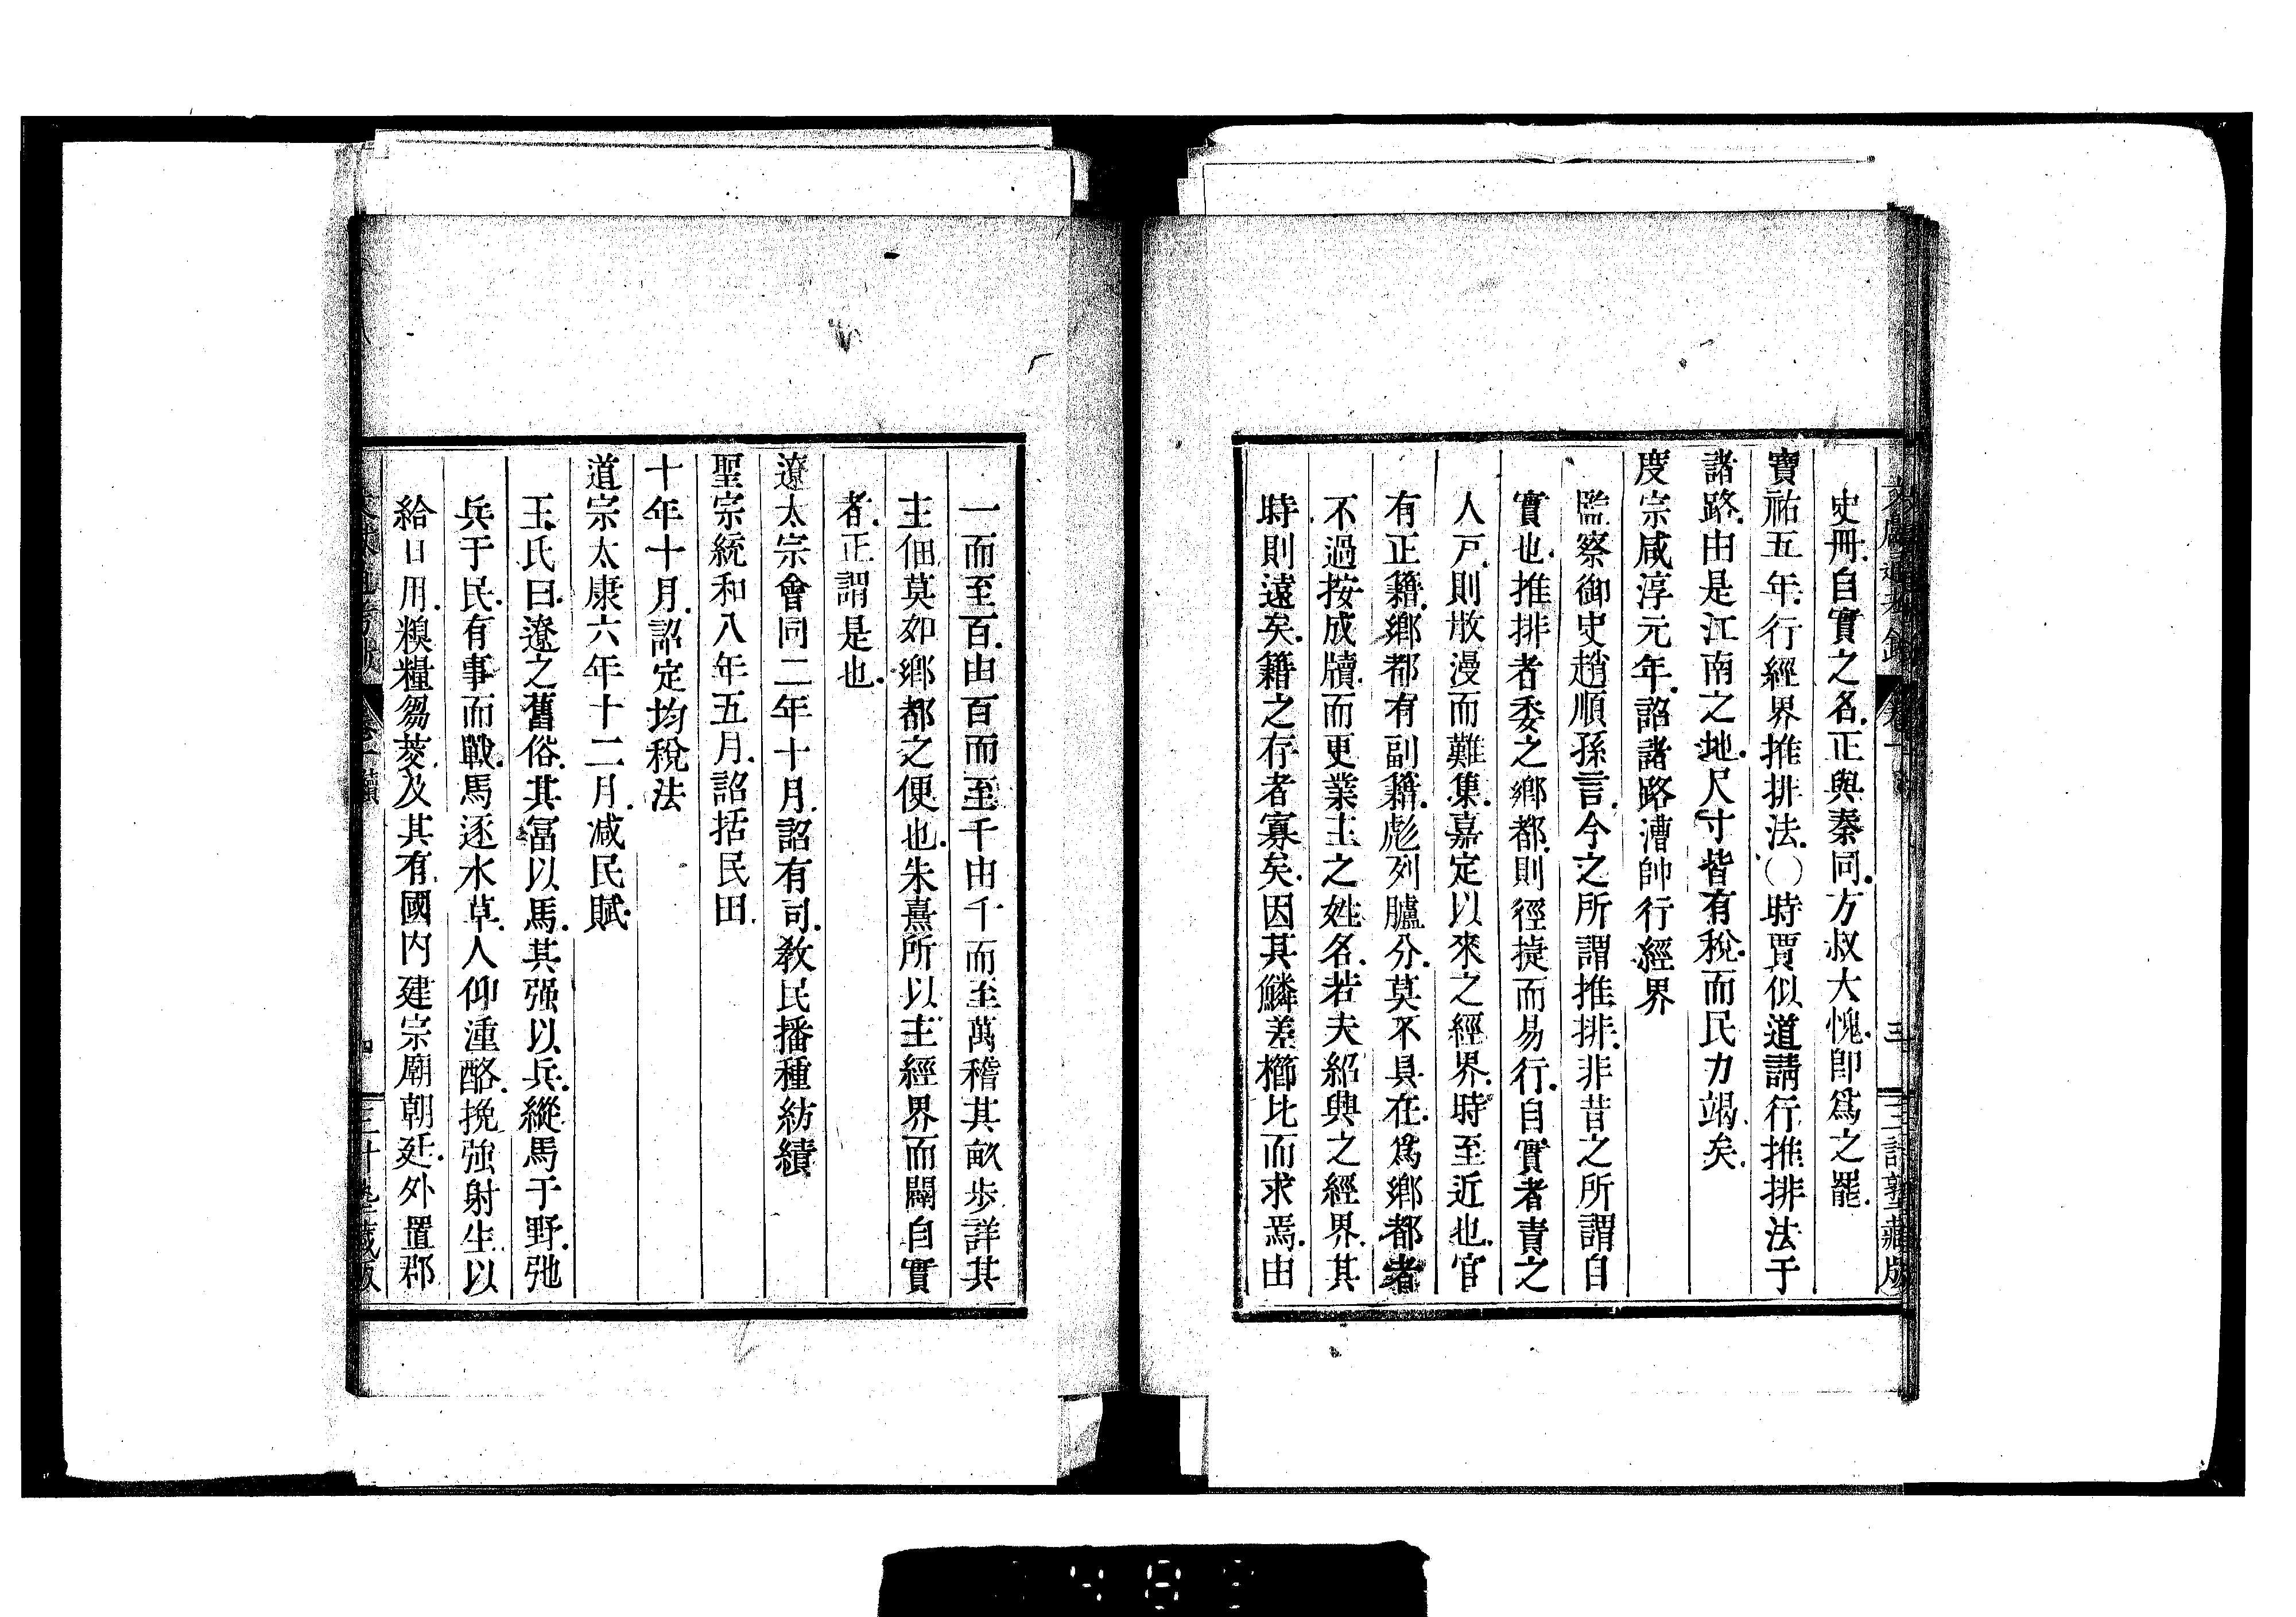 史冊自實之名正與秦同方叔大愧卽爲之罷
寶祐五年行經界推排法〇時賈似道請行推排法于
諸路由是江南之地尺寸皆有稅而民力竭矣
度宗咸淳元年詔諸路漕帥行經界
監察御史趙順孫言今之所謂推排非昔之所謂自
實也推排者委之鄉都則徑捷而易行自實者責之
人戸則散漫而難集嘉定以來之經界時至近也官
有正籍鄉都有副籍彪列臚分莫不具在爲鄉都者
不過按成牘而更業主之姓名若夫紹興之經界其
時則遠矣籍之存者寡矣因其鱗差櫛比而求焉由
一而至百由百而至千由千而至萬稽其畝步詳其
主佃莫如鄉都之便也朱熹所以主經界而闢自實
者正謂是也
遼太宗會同二年十月詔有司教民播種紡績
聖宗統和八年五月詔括民田
十年十月詔定均稅法
道宗太康六年十二月減民賦
王氏曰遼之舊俗其富以馬其强以兵縱馬于野弛
兵于民有事而戰馬逐水草人仰湩酪挽強射生以
給日用糗糧芻茭及其有國內建宗廟朝廷外置郡